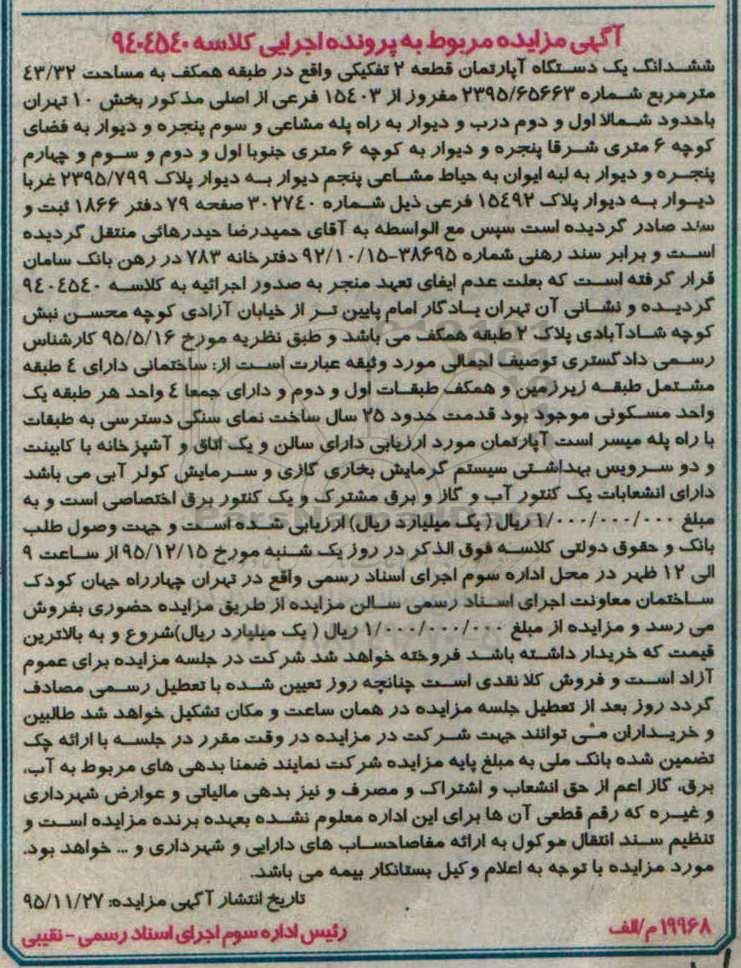 آگهی مزایده مربوط به پرونده اجرایی کلاسه ۹۴۰۴۵۴۰
ششدانگ یک دستگاه آپارتمان قطعه ۲ تفکیکی واقع در طبقه همکف به مساحت ۴۳/۳۲
مترمربع شماره ۲۳۹۵/۶۵۶۶۳ مفروز از ۱۵۴۰۳ فرعی از اصلی مذکور بخش ۱۰ تهران
باحدود شمالا اول و دوم درب و دیوار به راه پله مشاعی و سوم پنجره و دیوار به فضای
کوچه ۶ متری شرقا پنجره و دیوار به کوچه ۶ متری جنوبا اول و دوم و سوم و چهارم
پنجره و دیوار به لبه ایوان به حیاط مشاعی پنجم دیوار به دیوار پلاک ۲۳۹۵/۷۹۹ غربا
دیوار به دیوار پلاک ۱۵۴۹۲ فرعی ذیل شماره ۳۰۲۷۴۰ صفحه ۷۹ دفتر ۱۸۶۶ ثبت و
سند صادر گردیده است سپس مع الواسطه به آقای حمیدرضا حیدرهائی منتقل گردیده
است و برابر سند رهنی شماره ۳۸۶۹۵-۹۲/۱۰/۱۵ دفترخانه ۷۸۳ در رهن بانک سامان
قرار گرفته است که بعلت عدم ایفای تعهد منجر به صدور اجرائیه به کلاسه ۹۴۰۴۵۴۰
گردیده و نشانی آن تهران یادگار امام پایین تر از خیابان آزادی کوچه محسن نبش
کوچه شادآبادی پلاک ۲ طبقه همکف می باشد و طبق نظریه مورخ ۹۵/۵/۱۶ کارشناس
رسمی دادگستری توصیف اجمالی مورد وثیقه عبارت است از: ساختمانی دارای ۴ طبقه
مشتمل طبقه زیرزمین و همکف طبقات اول و دوم و دارای جمعا ۴ واحد هر طبقه یک
واحد مسکونی موجود بود قدمت حدود ۲۵ سال ساخت نمای سنگی دسترسی به طبقات
با راه پله میسر است آپارتمان مورد ارزیابی دارای سالن و یک اتاق و آشپزخانه با کابینت
و دو سرویس بهداشتی سیستم گرمایش بخاری گازی و سرمایش کولر آبی می باشد
دارای انشعابات یک کنتور آب و گاز و برق مشترک و یک کنتور برق اختصاصی است و به
مبلغ ۱/۰۰۰/۰۰۰/۰۰۰ ریال( یک میلیارد ریال) ارزیابی شده است و جهت وصول طلب
بانک و حقوق دولتی کلاسه فوق الذکر در روز یک شنبه مورخ ۹۵/۱۲/۱۵ از ساعت ۹
الی ۱۲ ظهر در محل اداره سوم اجرای اسناد رسمی واقع در تهران چهارراه جهان کودک
ساختمان معاونت اجرای اسناد رسمی سالن مزایده از طریق مزایده حضوری بفروش
می رسد و مزایده از مبلغ ۱/۰۰۰/۰۰۰/۰۰۰ ریال ( یک میلیارد ریال)شروع و به بالاترین
قیمت که خریدار داشته باشد فروخته خواهد شد شرکت در جلسه مزایده برای عموم
آزاد است و فروش کلا نقدی است چنانچه روز تعیین شده با تعطیل رسمی مصادف
گردد روز بعد از تعطیل جلسه مزایده در همان ساعت و مکان تشکیل خواهد شد طالبین
و خریداران می توانند جهت شرکت در مزایده در وقت مقرر در جلسه با ارائه چک
تضمین شده بانک ملی به مبلغ پایه مزایده شرکت نمایند ضمنا بدهی های مربوط به آب،
برق، گاز اعم از حق انشعاب و اشتراک و مصرف و نیز بدهی مالیاتی و عوارض شهرداری
و غیره که رقم قطعی آن ها برای این اداره معلوم نشده بعهده برنده مزایده است و
تنظیم سند انتقال موکول به ارائه مفاصاحساب های دارایی و شهرداری و ... خواهد بود.
مورد مزایده با توجه به اعلام وکیل بستانکار بیمه می باشد.
تاریخ انتشار آگهی مزایده: ۹۵/۱۱/۲۷
۱۹۹۶۸م/الف رئیس اداره سوم اجرای اسناد رسمی - نقیبی